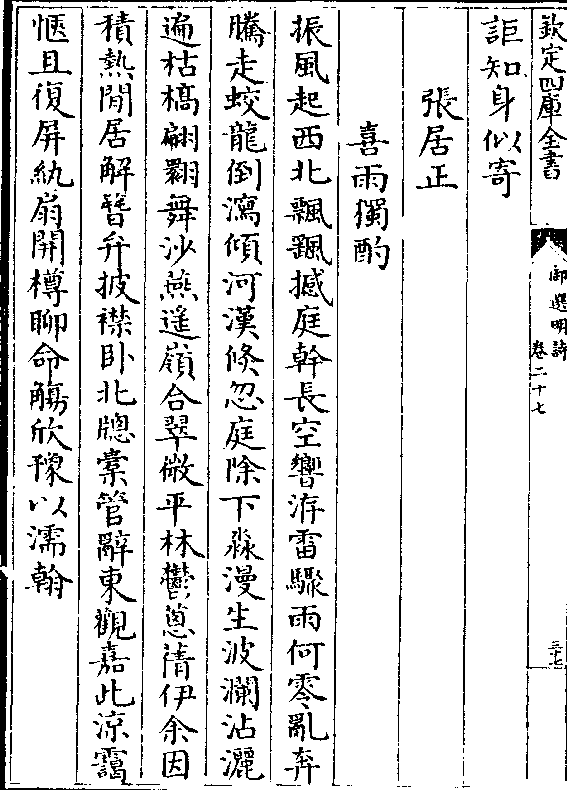 欽定四庫全書
御選明詩
卷二十七
三十七
詎知身似寄
張居正
喜雨獨酌
振風起西北飄飄撼庭幹長空響洊雷驟雨何零亂奔
騰走蛟龍倒瀉傾河漢倏忽庭除下淼漫生波瀾沾灑
遍枯槁翩翾舞沙燕遥嶺合翠微平林鬱蔥蒨伊余因
積熱閒居解簮弁披襟卧北牕橐管辭東觀嘉此涼靄
愜且復屏紈扇開樽聊命觴欣豫以濡翰